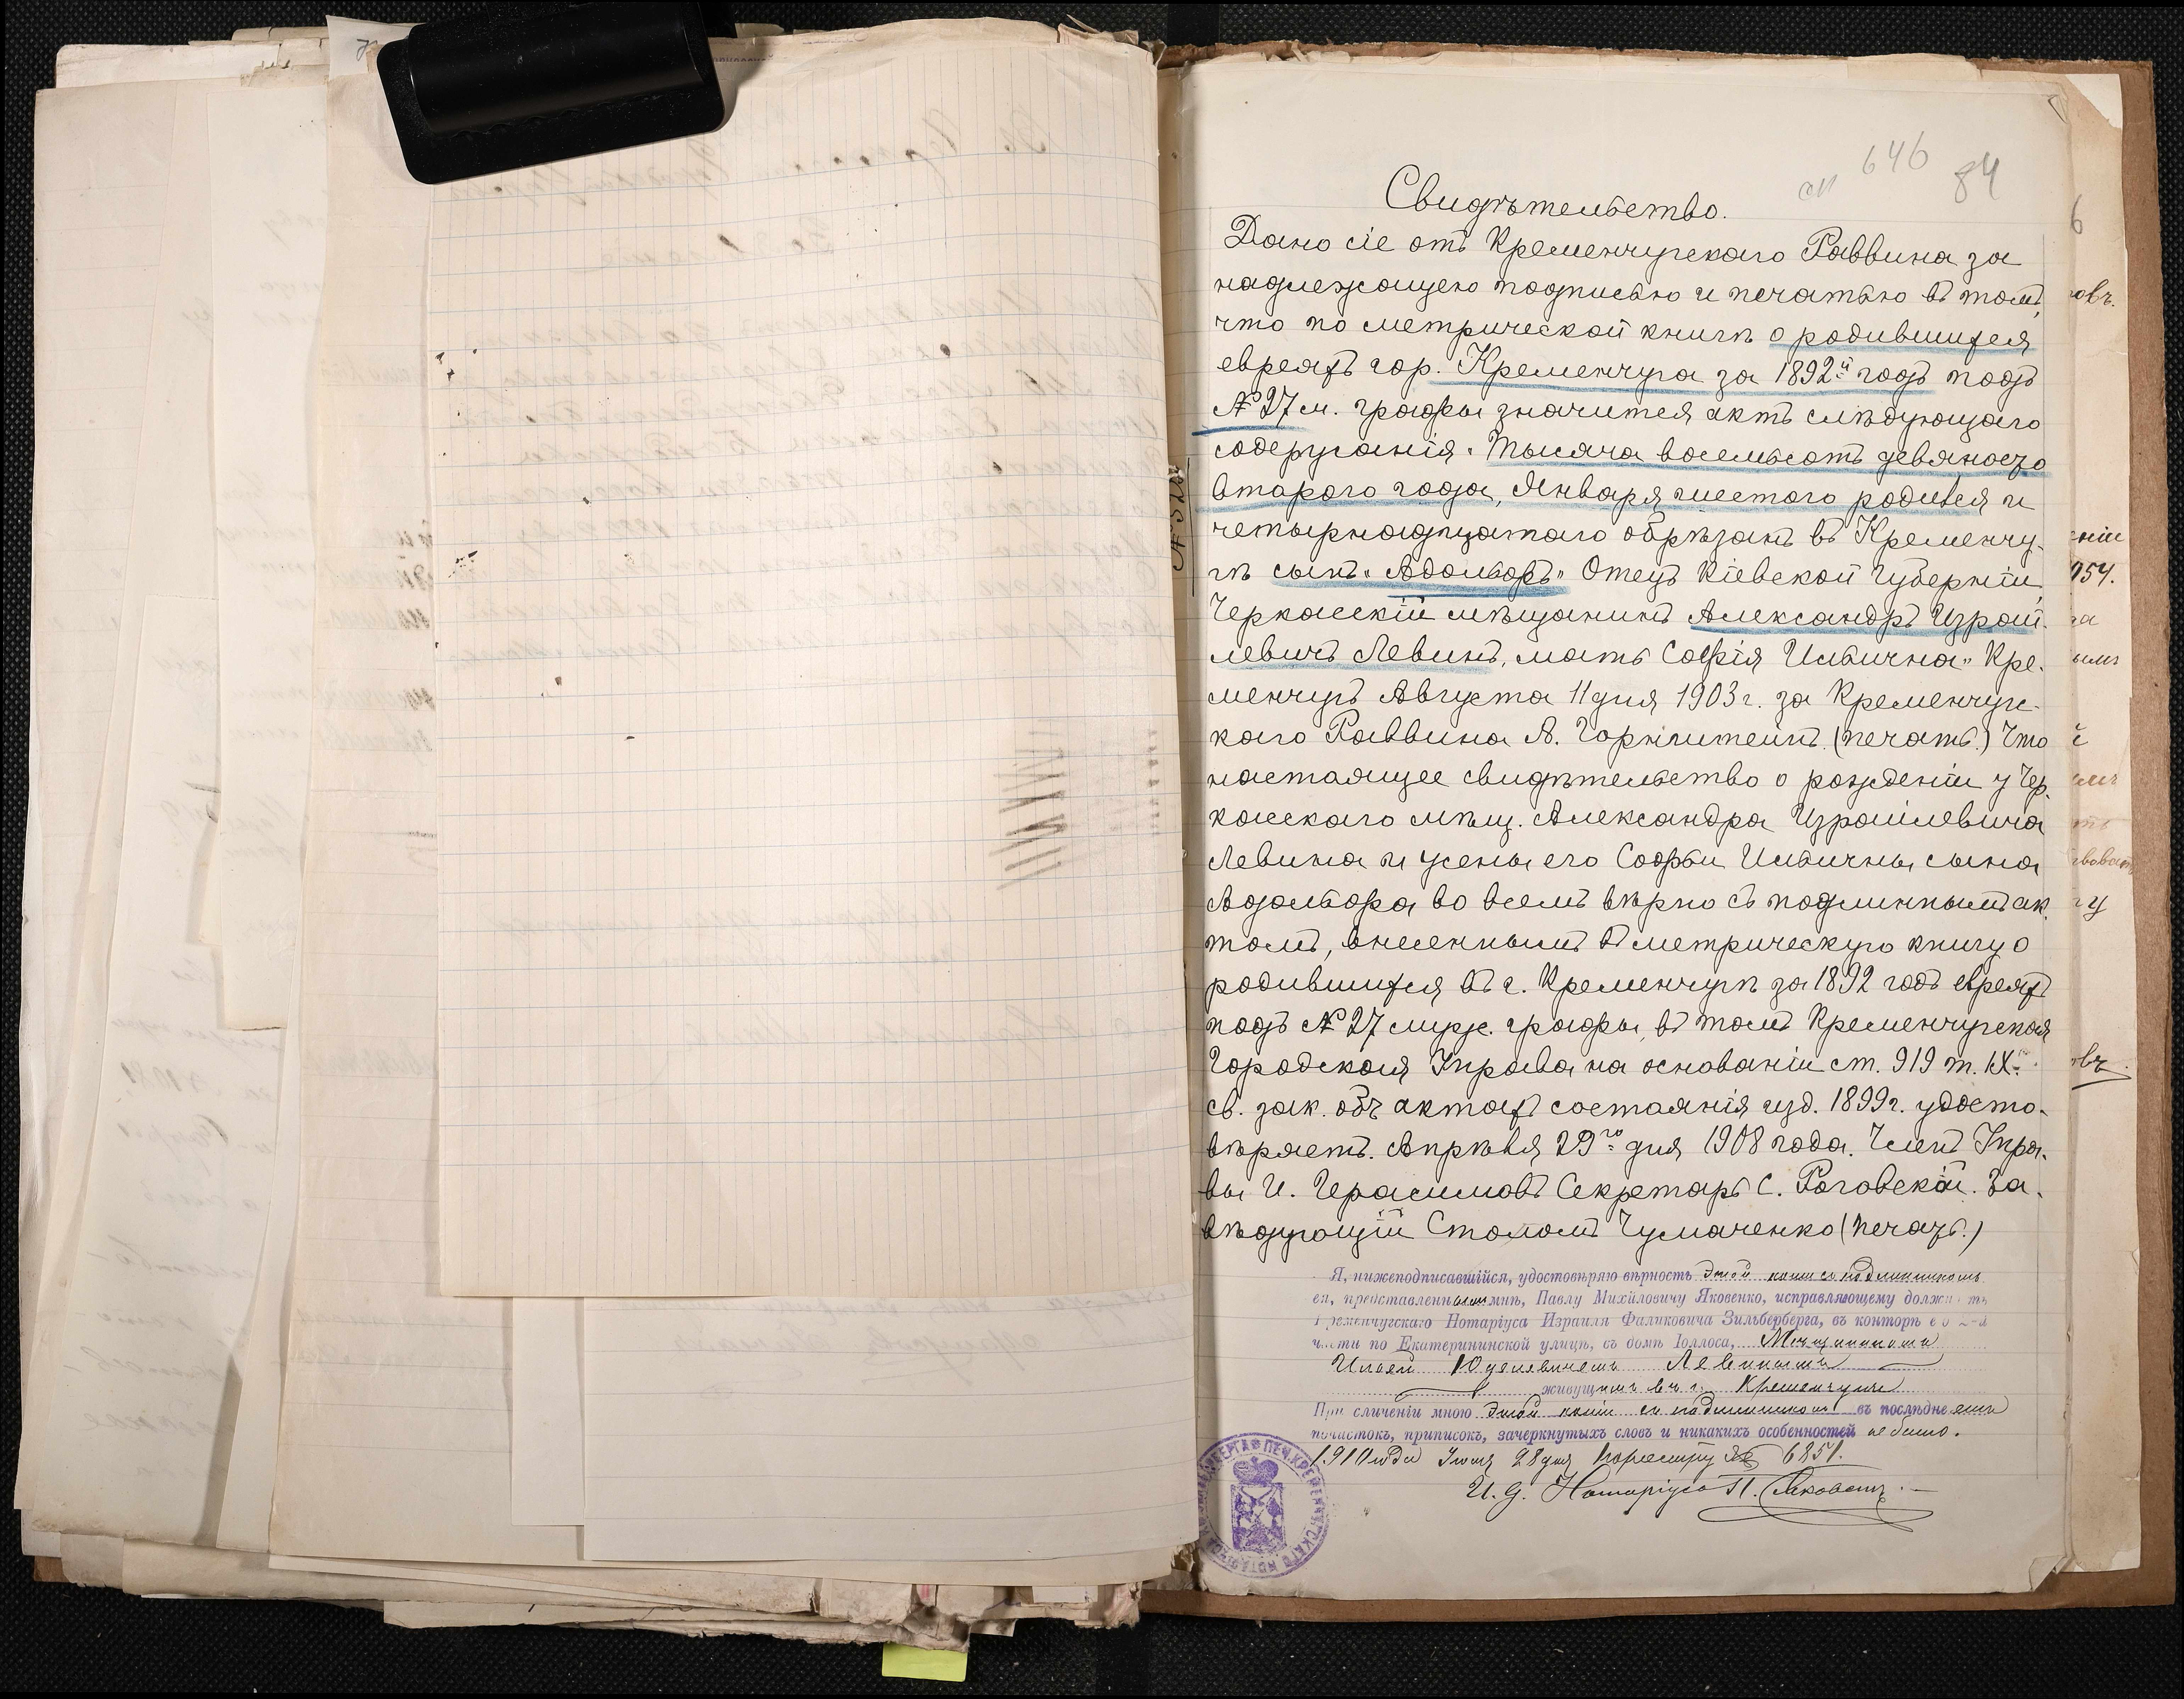 646
84
Свидѣтельство.
Дано сіе отъ Кременчугскаго Раввина за
надлежащею подписью и печатью въ томъ,
что по метрической книгѣ о родившихся
евреяхъ гор. Кременчуга за 1892й годъ подъ
№ 27 м. графы значится актъ слѣдующаго
содержанія: „Тысяча восемьсотъ девяносто
второго года, Января шестого родился и
четырнадцатаго обрѣзанъ въ Кременчу-
гѣ сынъ „Адольфъ" Отецъ Кіевской Губерніи,
Черкасскій мѣщанинъ Александръ Израи-
левичъ Левинъ, мать Софія Ильична" Кре-
менчугъ Августа 11 дня 1903 г. за Кременчугс-
каго Раввина А. Горнштейнъ (печать.) Что
настоящее свидѣтельство о рожденіи у Чер-
касскаго мѣщ. Александра Израилевича
Левина и жены его Софьи Ильичны сына
Адольфа во всемъ вѣрно съ подлиннымъ ак-
томъ, внесеннымъ въ метрическую книгу о
родившихся въ г. Кременчугѣ за 1892 годъ евреяхъ
подъ № 27 мужс. графы, въ томъ Кременчугская
Городская Управа на основаніи ст. 919 т. IX
св. зак. объ актахъ состоянія изд. 1899 г. удосто-
вѣряетъ. Апрѣля 29го дня 1908 года. Членъ Упра-
вы И. Герасимовъ Секретарь С. Роговскій. За-
вѣдующій Столомъ Чумаченко (печать.)
Я, нижеподписавшійся, удостовѣряю вѣрность этой копіи съ подлинникомъ
ея, представленнымъ мнѣ, Павлу Михайловичу Яковенко, исправляющему должность
Кременчугскаго Нотаріуса Израиля Фаликовича Зильберберга, въ конторѣ его 2-й
части по Екатерининской улицѣ, въ домѣ Іоллоса, Мѣщаниномъ
Ильей Юделевичемъ Левинымъ
живущимъ въ г. Кременчугѣ
При сличеніи мною этой копіи съ подлинникомъ въ послѣднемъ
почистокъ, приписокъ, зачеркнутыхъ словъ и никакихъ особенностей не было.
1910 года Іюля 28 дня По реестру № 6851.
И. д. Нотаріуса П. Яковенко